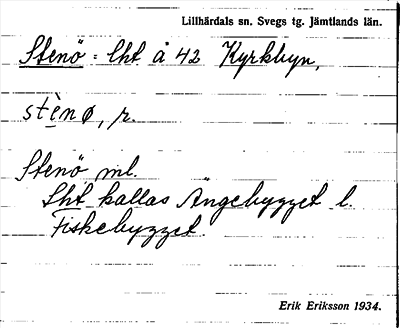 Lillhärdals sn. Svegs tg. Jämtlands län.
Stenö = lht å 42 Kyrkbyn,
stènø, r.
Stenö ml.
Lht kallas Ängebygget l.
Fiskebygget.
Erik Eriksson 1934.